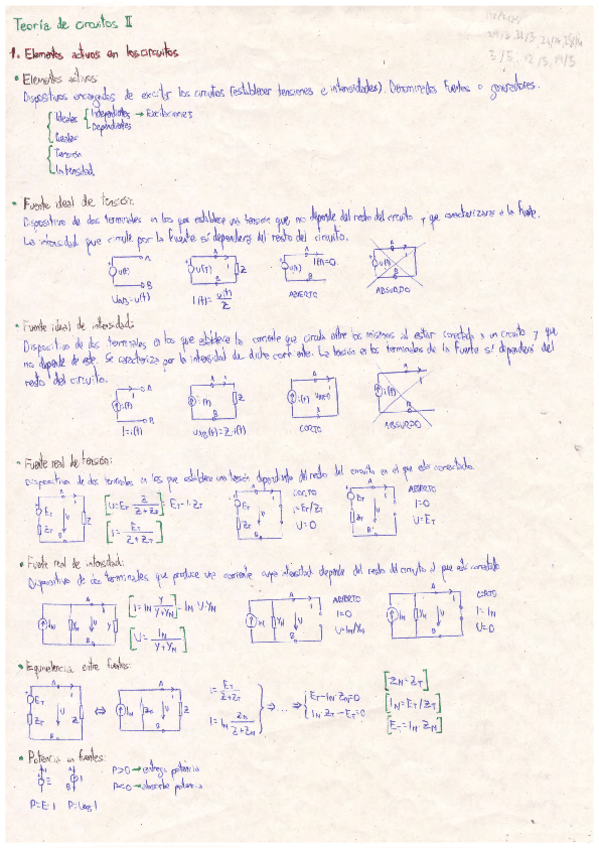 Teoría de circuitos II
1. Elementos activos en los circuitos
• Elementos activos:
Dispositivos encargados de excitar los circuitos (establecer tensiones e intensidades). Denominados fuentes o generadores.
Ideales Independientes → Excitaciones
Dependientes
Reales
Tensión
Intensidad
• Fuente ideal de tensión:
Dispositivo de dos terminales en los que establece una tensión que no depende del resto del circuito y que caracterizara a la fuente.
La intensidad que circule por la fuente sí dependerá del resto del circuito.
A A A I(t)=0 A
u(t) u(t) Z u(t) u(t)
B B B B
UAB=u(t) I(t)= u(t)/Z ABIERTO ABSURDO
• Fuente ideal de intensidad:
Dispositivo de dos terminales en los que establece la corriente que circula entre los mismos al estar conectado a un circuito y que
no depende de este. Se caracteriza por la intensidad de dicha corriente. La tensión en los terminales de la fuente sí dependerá del
resto del circuito.
i(t) i(t) Z i(t) i(t)
I=i(t) UAB(t)=Z·i(t) CORTO ABSURDO
• Fuente real de tensión:
Dispositivo de dos terminales en los que establece una tensión dependiente del resto del circuito en el que esta conectada.
[U=ET Z/(Z+ZT)]=ET-I·ZT CORTO ABIERTO
I=ET/ZT I=0
[I= ET/(Z+ZT)] U=0 U=ET
• Fuente real de intensidad:
Dispositivo de dos terminales que produce una corriente cuya intensidad depende del resto del circuito al que esta conectado
[I=IN Y/(Y+YN)]=IN-U·YN ABIERTO CORTO
I=0 I=IN
[U= IN/(Y+YN)] U=IN/YN U=0
• Equivalencia entre fuentes:
ET ZT U Z ⇔ IN ZN U Z
I= ET/(Z+ZT) ⇒ ... ⇒ ET-IN·ZN=0 [ZN=ZT]
I=IN ZN/(Z+ZN) IN·ZT-ET=0 [IN=ET/ZT]
[ET=IN·ZN]
• Potencia en fuentes:
P>0 → entrega potencia
P<0 → absorbe potencia
P=E·I P=UAB·I